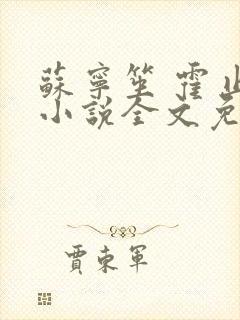 蘇寧笙 霍止
小說全文免
賈東軍